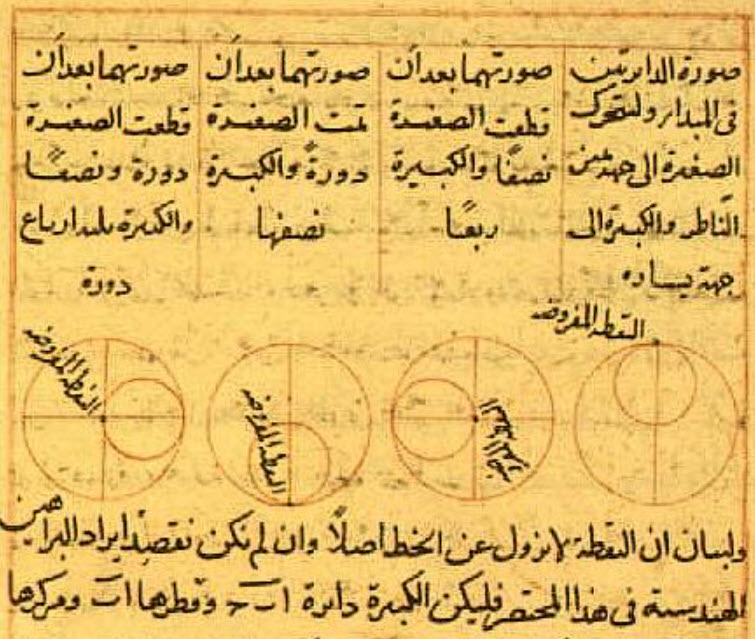 صورة الدايرتين
فى المبدا ولتتحرك
الصغيرة الى جهة يمين
الناظر والكبيرة الى
جهة يساره
صورتهما بعد ان
قطعت الصغيرة
نصفا والكبيرة
ربعا
صورتهما بعد ان
تمت الصغيرة
دورة والكبيرة
نصفها
صورتهما بعد ان
قطعت الصغيرة
دورة ونصفا
والكبيرة ثلثة ارباع
دورة
النقطة المفروضة
النقطة المفروضة
النقطة المفروضة
ولبيان ان النقطة لا يزول عن الخط اصلا وان لم نكن نقصد ايراد البراهين
الهندسية فى هذا المختصر فليكن الكبيرة دائرة ا ب ح وقطرها ا ب ومركزها